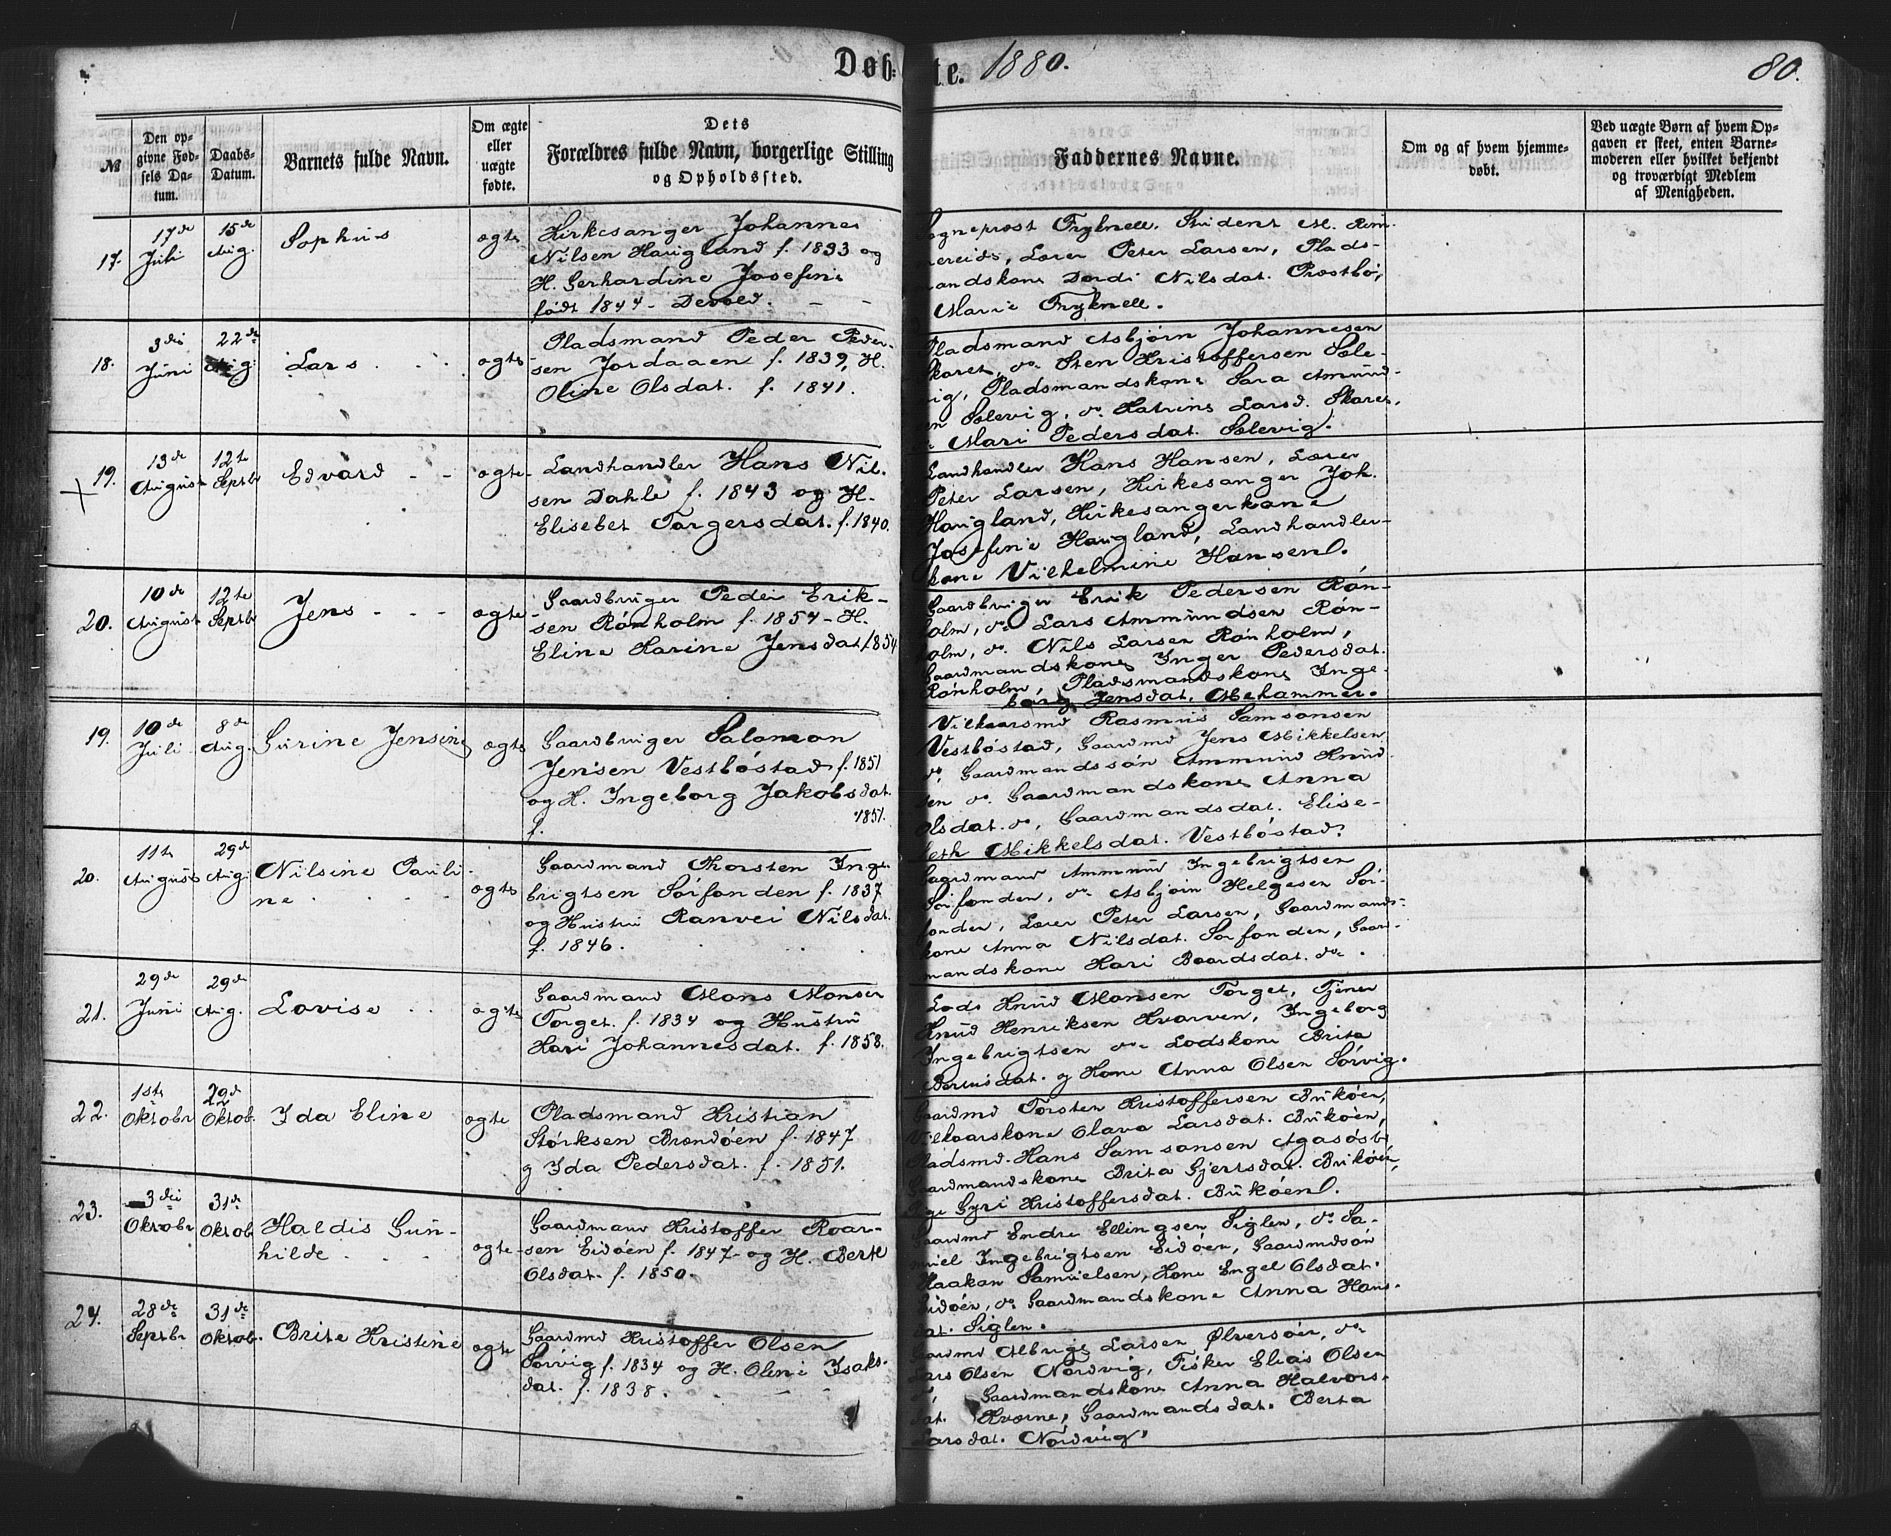 Døb-te. 1880. 80.
№
Den op-
givne Fød-
sels Da-
tum.
Daabs-
Datum.
Barnets fulde Navn.
Om ægte
eller
uægte
fødte.
Dets
Forældres fulde Navn, borgerlige Stilling
og Opholdssted.
Faddernes Navne.
Om og af hvem hjemme-
døbt.
Ved uægte Børn af hvem Op-
gaven er skeet, enten Barne-
moderen eller hvilket bekjendt
og troværdigt Medlem
af Menigheden.
17.
17de
Juli
15de
Aug.
Sophus
ægte
Kirkesanger Johannes
Nilsen Haugland f. 1833 og
H. Gerhardine Josefine
født 1844 - Devold. - -
Sogneprost Fryknell. Student M.
Lærer Peter Larsen, Plads-
mandskone Dordi Nilsdat. Prestbø,
Marie Fryknell.
18.
3die
Juni
22de
Aug.
Lars
ægte
Pladsmand Peder Peder-
sen Jordaaen f. 1839, H.
Oline Olsdat. f. 1841.
Pladsmand Asbjørn Johannesen
Skaret, do Sten Kristoffersen Sele-
vig, Pladsmandskone Sara Amund-
Selevig, do Katrine Larsd. Skaret,
Mari Pedersdat. Selevig.
19.
13de
August
12te
Septbr
Edvard - -
ægte
Landhandler Hans Nil-
sen Dahle f. 1843 og H.
Elisebet Torgersdat. f. 1840.
Landhandler Hans Hansen, Lærer
Peter Larsen, Kirkesanger Joh.
Haugland, Kirkesangerkone
Josefine Haugland, Landhandler-
kone Vilhelmine Hansen.
20.
10de
August
12te
Septbr
Jens - - -
ægte
Gaardbruger Peder Erik-
sen Rønholm f. 1854 - H.
Eline Karine Jensdat. f. 1854
Gaardbruger Erik Pedersen Røn-
holm, do Lars Ammundsen Røn-
holm, do Nils Larsen Rønholm,
Gaardmandskone Inger Pedersdat.
Rønholm, Pladsmandskone Inge-
borg Jensdat. Mehammer.
19.
10de
Juli
8de
Aug.
Surine Jensine
ægte
Gaardbruger Salamon
Jensen Vestbøstad f. 1851
og H. Ingeborg Jakobsdat.
f. 1851.
Vilkaarsmd Rasmus Samsonsen
Vestbøstad, Gaardmd Jens Mikkelsen
do Gaardmandssøn Ammund Knud-
sen do. Gaardmandskone Anna
Olsdat. do, Gaardmandsdat. Elise-
beth Mikkelsdat. Vestbøstad.
20.
11te
August
29de
Aug.
Nilsine Pauli-
ne
ægte
Gaardmand Thorsten Inge-
brigtsen Sørfonden f. 1837
og Hustru Ranvei Nilsdat.
f. 1846.
Gaardmand Ammund Ingebrigtsen
Sørfonden, do Asbjørn Helgesen Sør-
fonden, Lærer Peter Larsen, Gaardmands-
kone Anna Nilsdat. Sørfonden, Gaard-
mandskone Kari Baardsdat. do.
21.
29de
Juni
29de
Aug.
Lovise
ægte
Gaardmand Mons Monsen
Torget. f. 1834 og Hustru
Kari Johannesdat. f. 1858.
Lods Knud Monsen Torget, Tjener
Knud Henriksen Kvarven, Ingeborg
Ingebrigtsen do Lodskone Brita
Berentsdat. og Kone Anna Olsen Sørvig.
22.
1ste
Oktobr
29de
Oktob.
Ida Eline
ægte
Pladsmand Kristian
Størksen Brendøen f. 1847
g Ida Pedersdat. f. 1851.
Gaardmd Torsten Kristoffersen Bukøen,
Vilkaarskone Olava Larsdat. Bukøen,
Pladsmd. Hans Samsonsen Agasøsb
Gaardmandskone Brita Gjertsdat. Bukøen,
Pige Gyri Kristoffersdat. Bukøen.
23.
3die
Oktobr
31de
Oktob
Haldis Gun-
hilde
ægte
Gaardmand Kristoffer Roar-
sen Eidøen f. 1847 og H. Berte
Olsdat. f. 1850.
Gaardmd Endre Ellingsen Siglen, do Sa-
muel Ingebrigtsen Eidøen, Gaardmdssøn
Haakon Samuelsen, Kone Engel Olsdat.
Eidøen, do Gaardmandskone Anna Hans-
dat. Siglen.
24.
28de
Septbr
31de
Oktob.
Brite Kristine
ægte
Gaardmd Kristoffer Olsen
Sørvig f. 1834 og H. Oline Isaks-
dat. f. 1838.
Gaardmd Albrigt Larsen Ølversøen, do
Lars Olsen Nordvig, Fisker Elias Olsen
do Gaardmandskone Anna Halvors-
dat. Kværne, Gaardmandsdat. Berta
Larsdat. Nordvig.